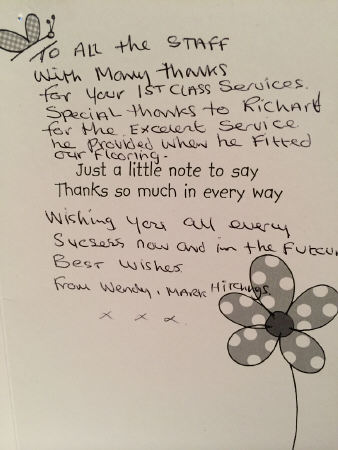 To All the STAFF
With Many thanks
for your 1ST CLASS Services.
Special thanks to Richard
for the Excelent Service
he Provided when he Fitted
our Flooring.
Just a little note to say
Thanks so much in every way
Wishing you all every
Sycsess now and in the Futur
Best Wishes
From Wendy, MARK Hitchings
x x x